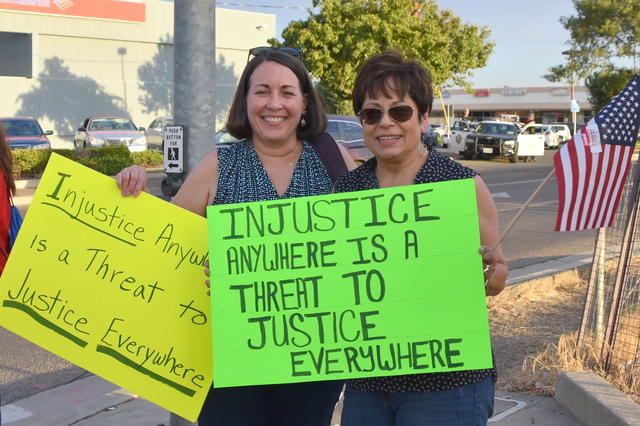 PUSH
BUTTON
FOR
Injustice Anyw
is a Threat to
Justice Everywhere
INJUSTICE
ANYWHERE IS A
THREAT TO
JUSTICE
EVERYWHERE